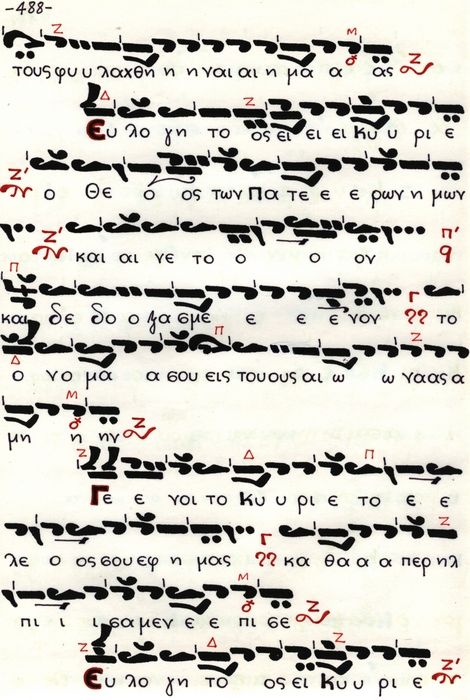 -488-
τους φυ υ λαχθη η η ναι αι η μα α ας
Ευ λο γη το ος ει ει ει Κυ υ ρι ε
ο Θε ο ος των Πα τε ε ε ρων η μων
και αι νε το ο ο ον
και δε δο ο ξα σμε ε ε ε νον το
ο νο μα α σου εις του ους αι ω ω νας α
μη η ην
Γε ε νοι το Κυ υ ρι ε το ε ε
λε ο ος σου εφ η μας κα θα α α περ ηλ
πι ι ι σα μεν ε ε πι σε
Ευ λο γη το ος ει Κυ υ ρι ε